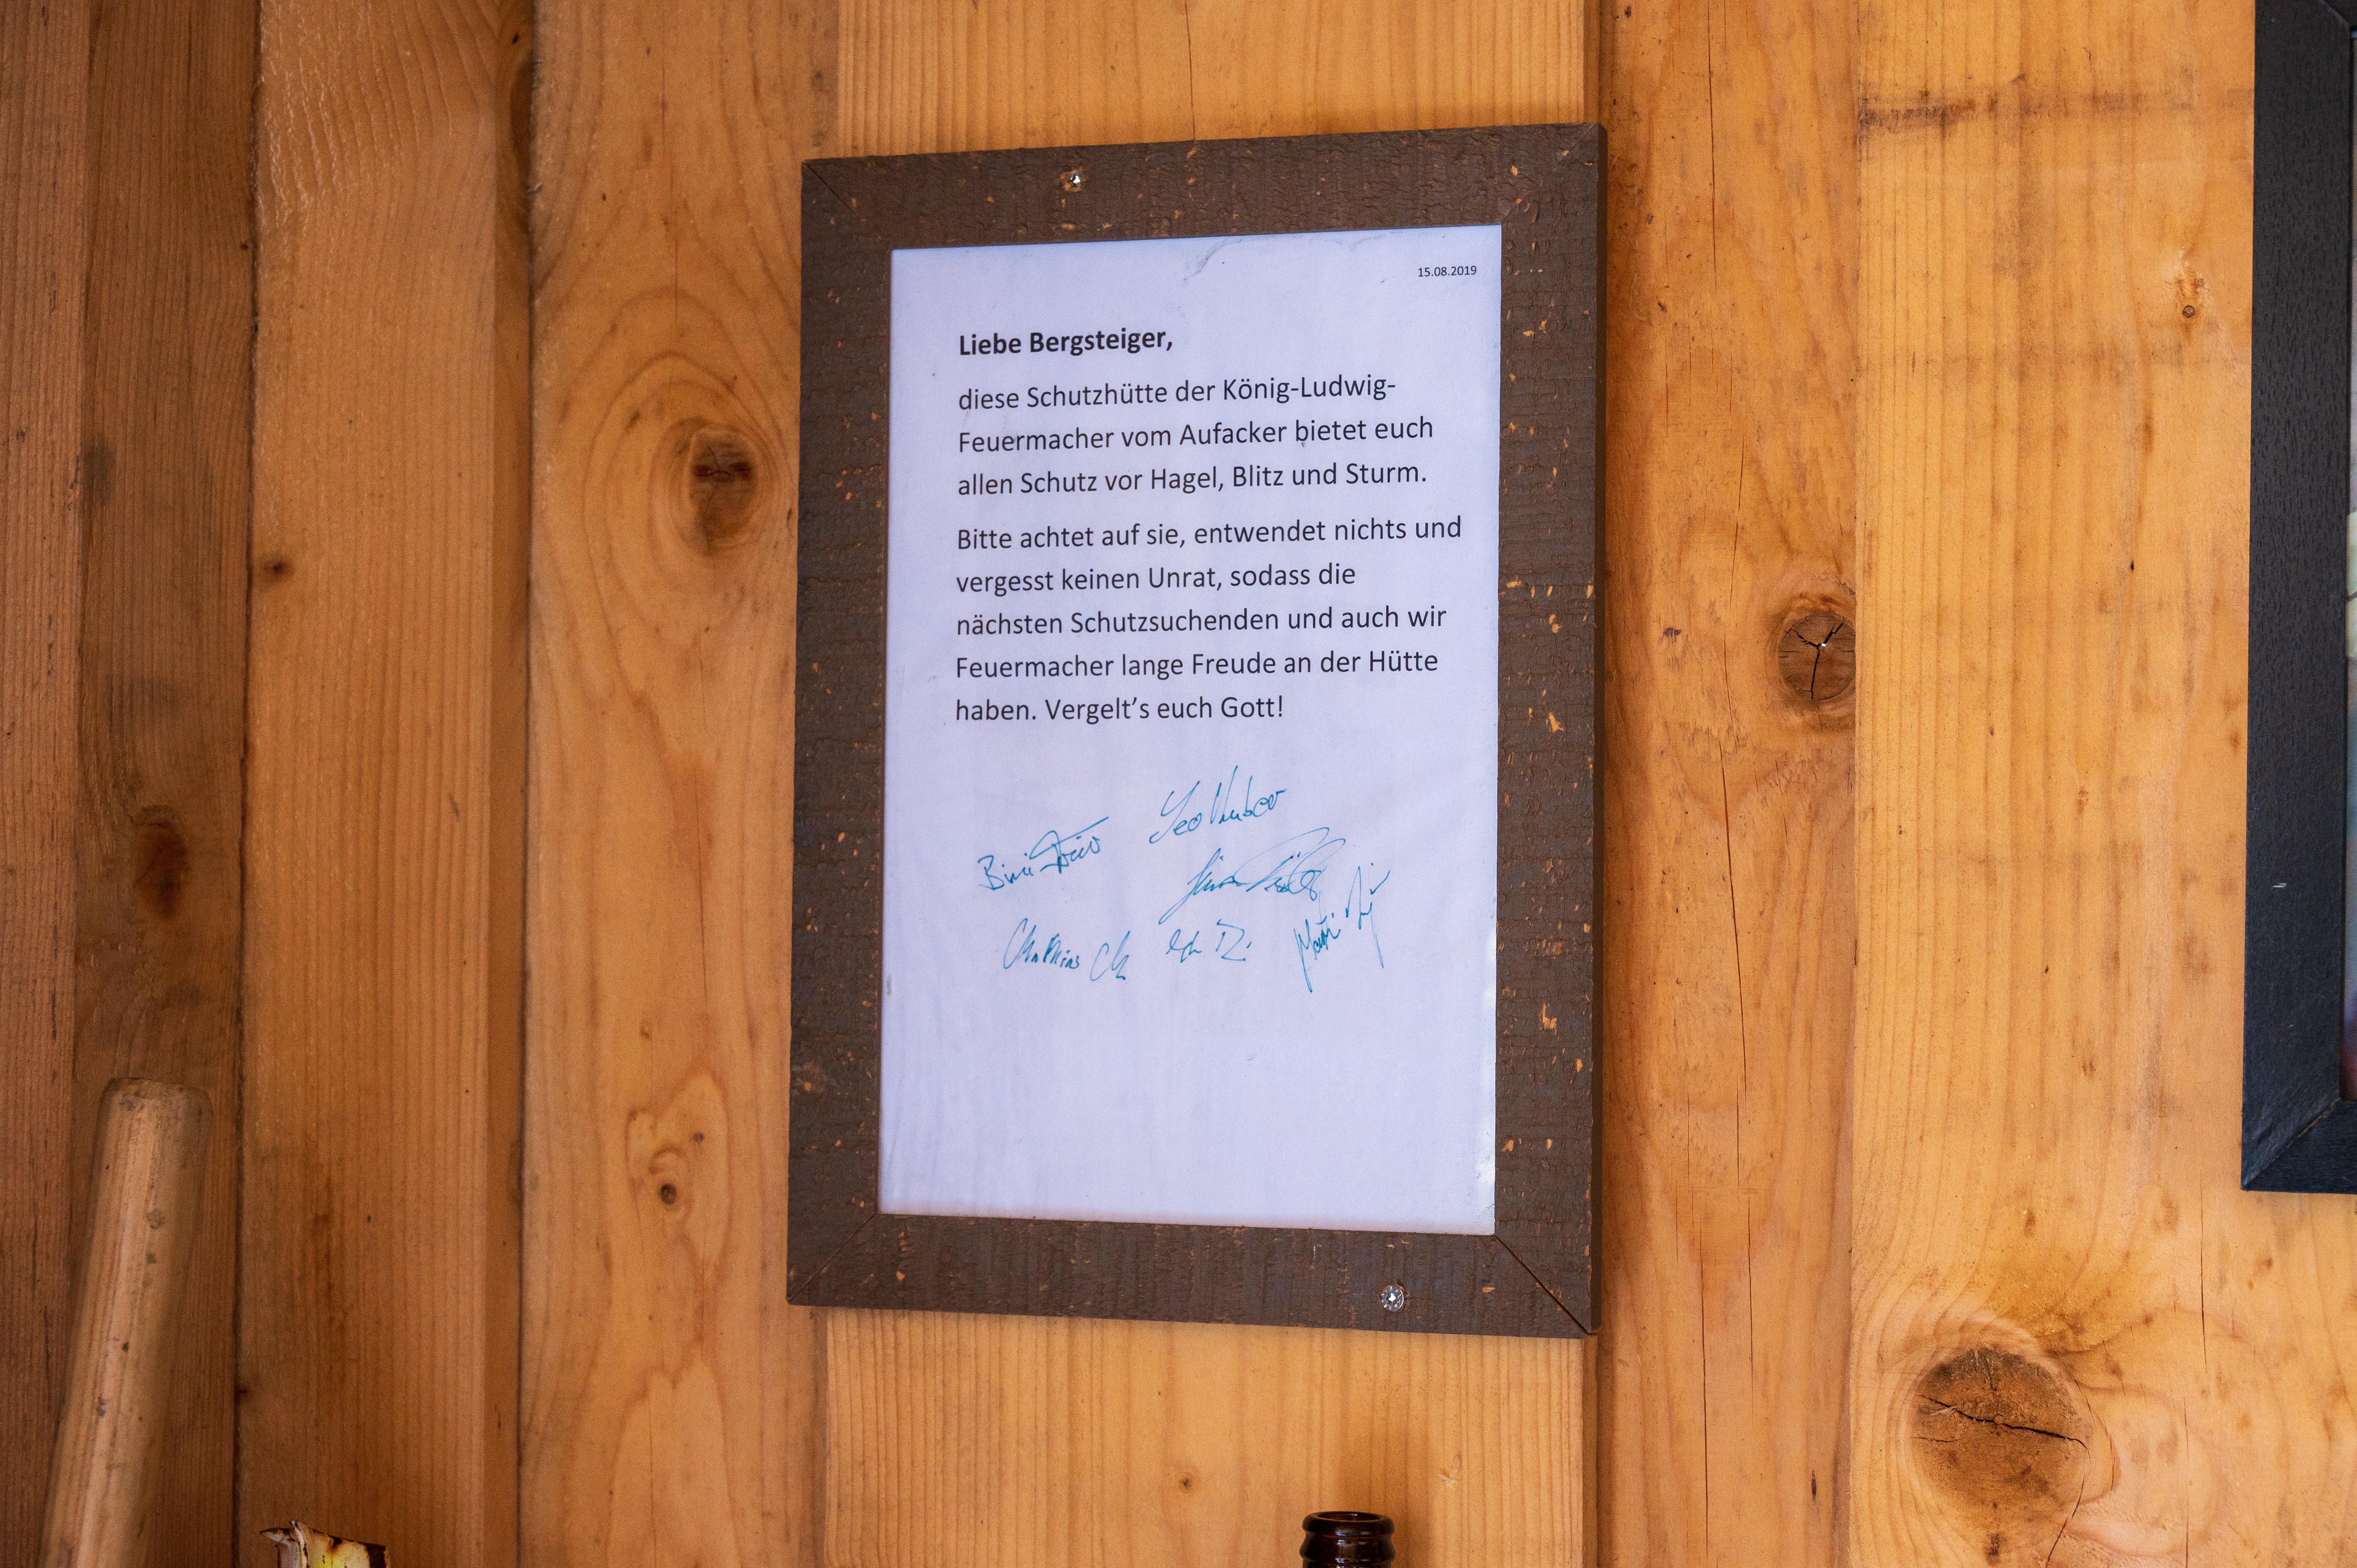 15.08.2019
Liebe Bergsteiger,
diese Schutzhütte der König-Ludwig-
Feuermacher vom Aufacker bietet euch
allen Schutz vor Hagel, Blitz und Sturm.
Bitte achtet auf sie, entwendet nichts und
vergesst keinen Unrat, sodass die
nächsten Schutzsuchenden und auch wir
Feuermacher lange Freude an der Hütte
haben. Vergelt’s euch Gott!